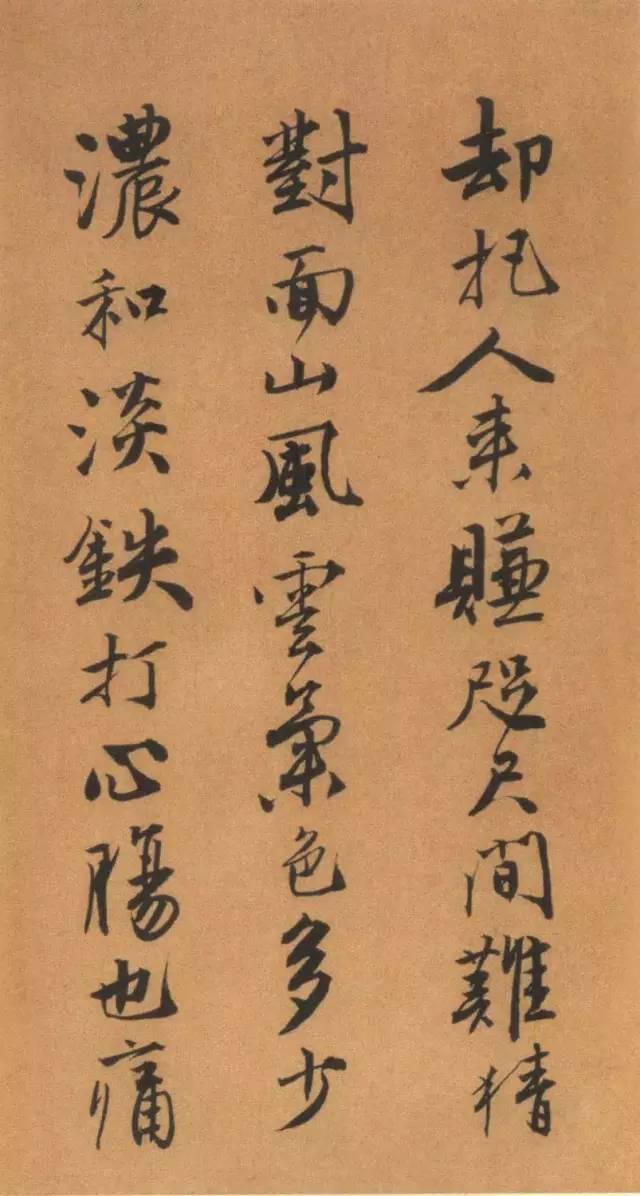 却把人来賺咫尺間難猜
對面山風雲色多少
濃和淡鉄打心腸也痛